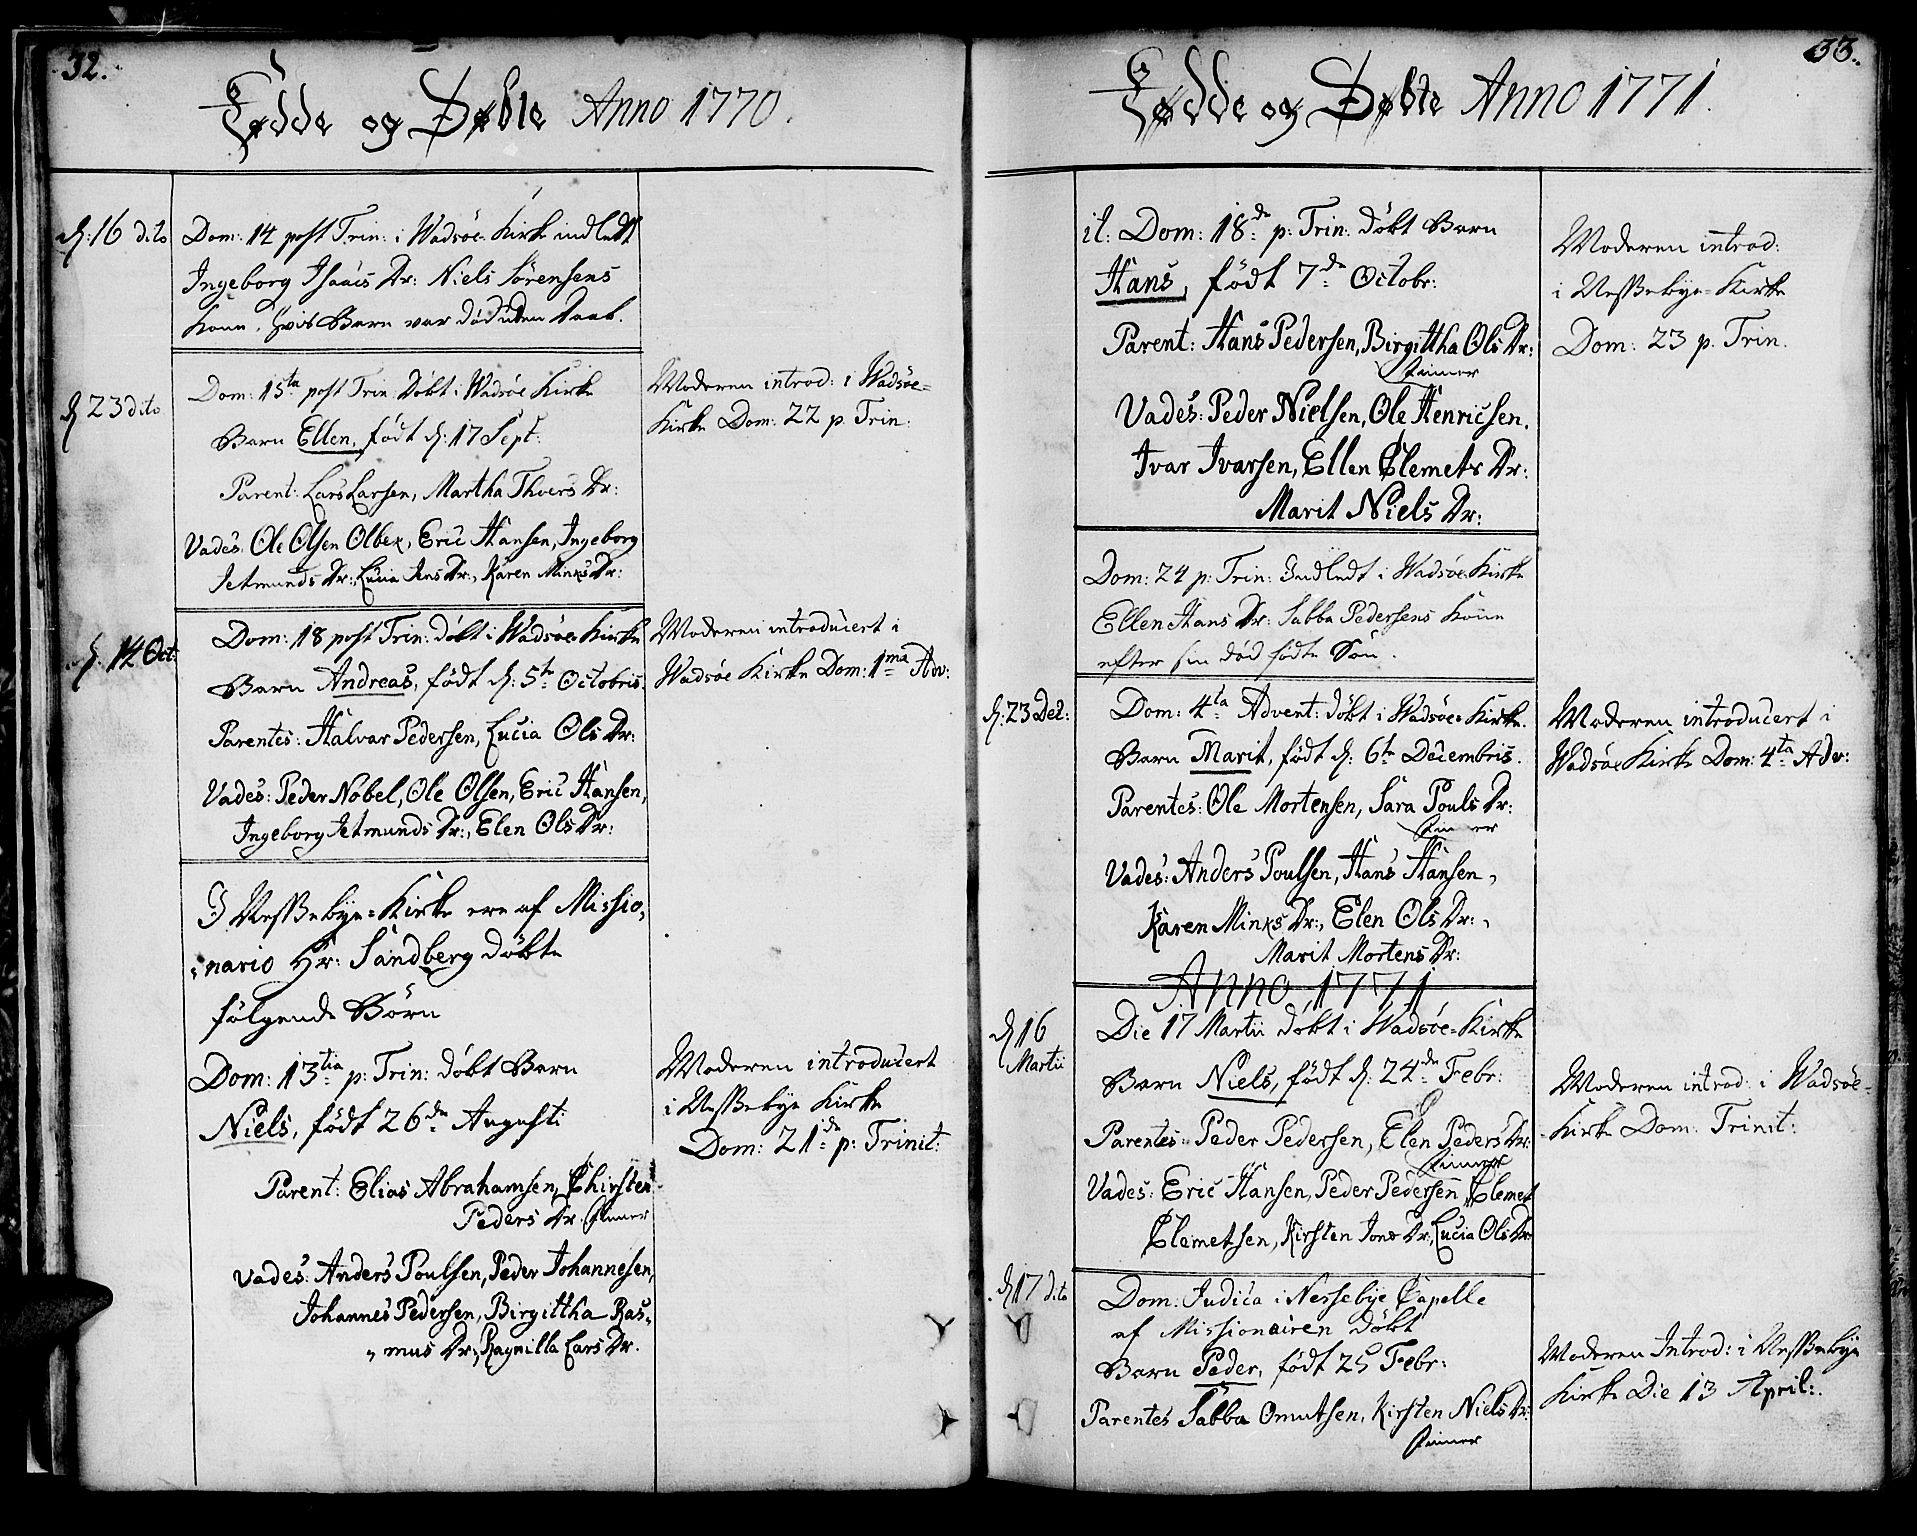 32.
Fødde og Døbte Anno 1770.
d. 16 dito
Dom: 14 post Trin: i Wadsøe Kirke indledt
Ingeborg Isaacs Dr: Niels Sörensens
Kone, hvis Barn var död uden Daab.
d 23 dito
Dom: 15ta post Trin: Döbt i Wadsöe Kirke
Barn Ellen, født d: 17 Sept:
Parent: Lars Larsen, Martha Thoers Dr:
Vades: Ole Olsen Olbex, Eric Hansen, Ingeborg
Jetmunds Dr:, Lucia Jens Dr:, Karen Minks Dr:
Moderen introd: i Wadsöe-
Kirke Dom: 22 p. Trin:
d. 14 Oct:
Dom: 18 post Trin: döbt i Wadsöe Kirke
Barn Andreas, født d: 5te Octobris
Parentes: Halvar Pedersen, Lucia Ols Dr:
Vades: Peder Nobel, Ole Olsen, Eric Hansen,
Ingeborg Jetmunds Dr:, Elen Ols Dr:
Moderen introducert i
Wadsöe Kirke Dom: 1ma Adv:
I Nessebye-Kirke ere af Missio-
nario Hr: Sandberg döbte
følgende Börn
Dom: 13tia p: Trin: döbt Barn
Niels, født 26de Augusti
Parent: Elias Abrahamsen, Chirsten
Peders Dr: Finner
Vades: Anders Poulsen, Peder Johannesen,
Johannes Pedersen, Birgittha Ras-
mus Dr:, Ragnilla Lars Dr.
Moderen introducert
i Nessebye Kirke
Dom: 21de p: Trinit:
33.
Fødde og Døbte Anno 1771.
it: Dom: 18de p: Trin: döbt Barn
Hans, født 7de Octobr:
Parent: Hans Pedersen, Birgittha Ols Dr:
Finner
Vades: Peder Nielsen, Ole Henricsen,
Ivar Ivarsen, Ellen Clemets Dr:
Marit Niels Dr:
Moderen introd:
i Nessebye-Kirke
Dom: 23 p. Trin.
Dom: 24 p: Trin: Indledt i Wadsöe Kirke
Ellen Hans Dr: Sabba Pedersens Kone
efter sin död födte Sön.
d: 23 Dec:
Dom: 4ta Advent: döbt i Wadsöe Kirke.
Barn Marit, født d: 6te Decembris.
Parentes: Ole Mortensen, Sara Pouls Dr:
Finner
Vades: Anders Poulsen, Hans Hansen,
Karen Minks Dr:, Elen Ols Dr:,
Marit Mortens Dr:
Moderen introducert i
Wadsöe Kirke Dom: 4ta Adv:
Anno 1771
d 16
Martii
Die 17 Martii döbt i Wadsöe-Kirke
Barn Niels, født d: 24de Febr:
Parentes: Peder Pedersen, Elen Peders Dr:
Finner
Vades: Eric Hansen, Peder Pedersen, Clemet
Clemetsen, Kirsten Jons Dr:, Lucia Ols Dr
Moderen introd: i Wadsöe-
Kirke Dom: Trinit:
d 17 dito
Dom: Judica i Nessebye Capelle
af Missionairen döbt
Barn Peder, født 25 Febr:
Parentes Sabba Omutsen, Kirsten Niels Dr:
Finner
Moderen Introd: i Nessebye
Kirke Die 13 April: